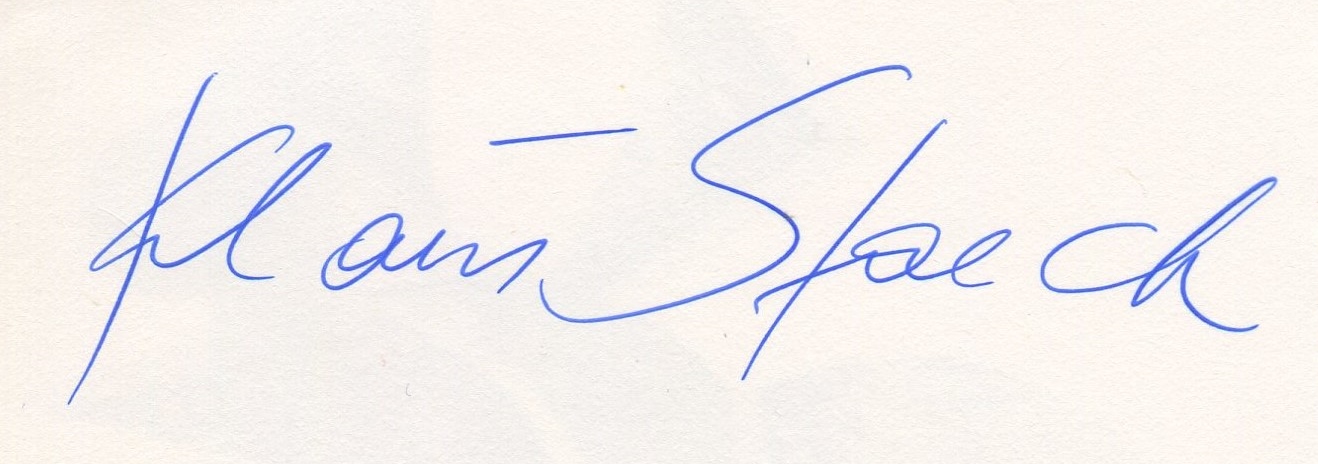 Klaus Staeck